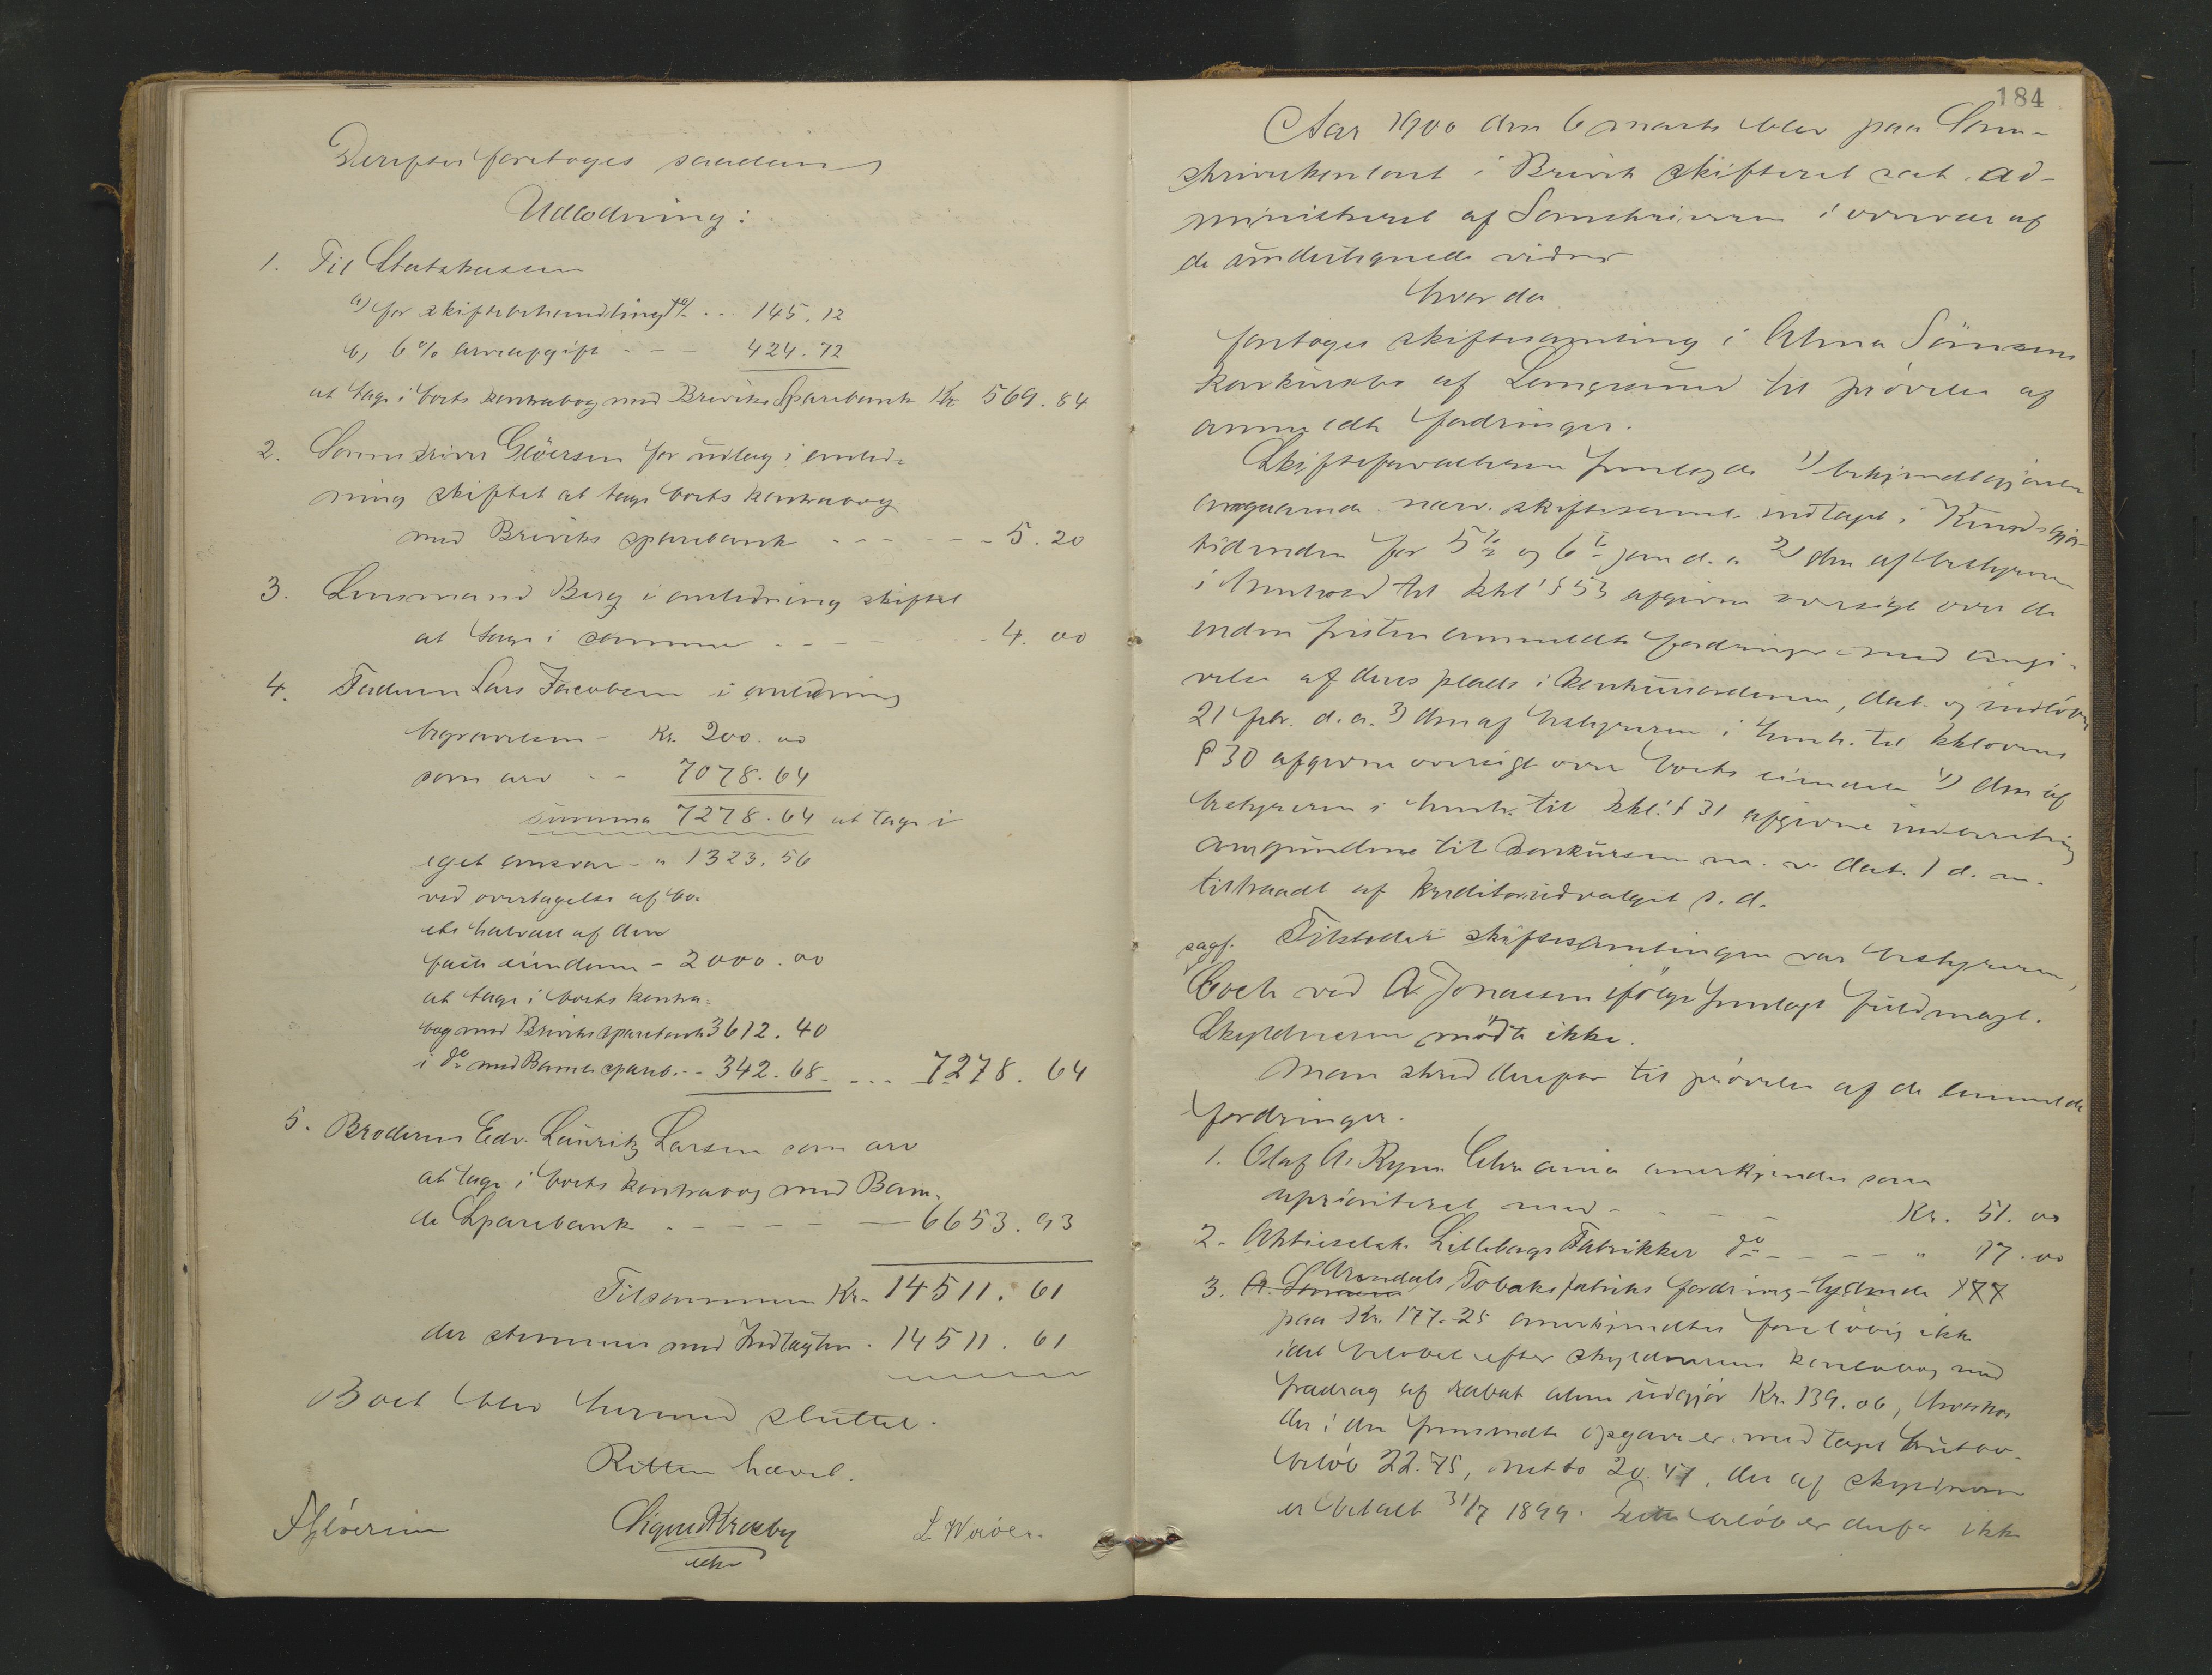 Derefter foretoges saadan
Udlodning:
1. Til Statskassen
a) for skiftebehandling 1% .. 145.12
b) 6% arveafgift - - - 424.72
at tage i boets kontrabog med Breviks Sparebank Kr 569.84
2. Sorenskriver Gløersen for udlæg i anled-
ning skiftet at tage boets kontrabog
med Breviks sparebank - - - - - - 5.20
3. Lensmand Berg i anledning skiftet
at tage i samme - - - - - - - 4.00
4. Faderen Lars Jacobsen i anledning
begravelsen - Kr. 200.00
som arv - - 7078.64
summa 7278.64 at tage i
eget ansvar - " 1323.56
ved overtagelse af bo-
ets halvdel af den
faste eiendom - 2000.00
at tage i boets kontra-
bog med Breviks sparebank 3612.40
i do med Bamle spareb. - - 342.68 - ... 7278.64
5. Broderen Edv. Lauritz Larsen som arv
at tage i boets kontrabog med Bam-
le Sparebank - - - - - - 6653.93
Tilsammen Kr. 14511.61
der stemmer med Indtægten . 14511.61
Boet blev hermed sluttet.
Retten hævet.
184
Aar 1900 den 6 marts blev paa Soren-
skriverkontoret i Brevik skifteret sat ad-
ministreret af Sorenskriveren i overvær af
de undertegnede vidner
hvor da
foretoges skiftesamling i Alma Sörensens
konkursbo af Langesund til prövelse af
anmeldte fordringer.
Skifteforvalteren fremlagde 1) bekjendtgjörelse
angaaende nærv. skiftesamling indtaget i Kundgjör-
tidenden for 5te og 6te jan d.a. 2) den af bestyreren
i henhold til kkl's § 53 afgivne oversigt over de
inden fristen anmeldte fordringer med angi-
velse af deres plads i konkursordenen, dat. og indlöbet
21 febr. d.a. 3) den af bestyreren i henh. til kklovens
§ 30 afgivne oversigt over boets eiendele 4) den af
bestyreren i henh. til kkl.s § 31 afgivne indberetning
om grundene til konkursen m.v. dat. 1 d.m.
tiltraadt af kreditorudvalget s.d.
Tilstede i skiftesamlingen var bestyreren,
sagf.
Coch ved A. Jonassen ifölge fremlagt fuldmagt.
Skyldneren mödte ikke.
Man skred derefter til prövelse af de anmeldte
fordringer.
1. Olaf A. Rym Chr ania anerkjendes som
uprioriteret med - - - - Kr. 51.00
2. Aktieselsk. Lilleborgs Fabrikker do - - - - " 17.00
3. Arendals Tobaksfabriks fordring lydende
paa Kr. 177.25 anerkjendtes forelöbig ikke
idet belöbet efter skyldnerens kontobog med
fradrag af rabat alene udgjör Kr. 139.06, hvorhos
der i den fremsendte opgave er medtaget brutto
belöb 22.75, netto 20.47, der af skyldneren
er betalt 31/7 1899. Dette belöb er derfor ikke